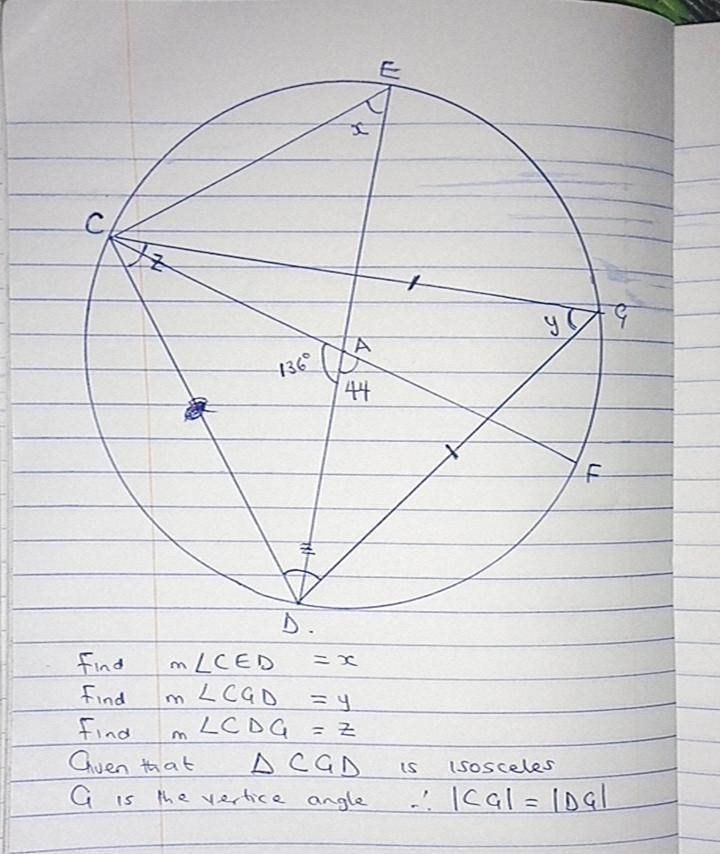 E
x
C
z
G
y
A
136°
44
F
z
D.
Find m∠CED = x
Find m∠CGD = y
Find m∠CDG = z
Given that Δ CGD is isosceles
G is the vertice angle ∴ |CG| = |DG|